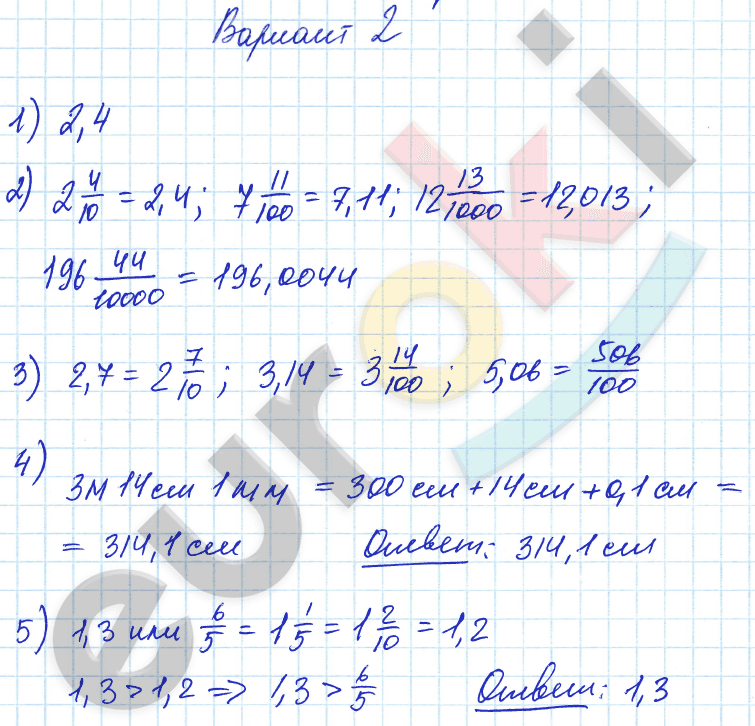 Вариант 2
1) 2,4
2) 2 4/10 = 2,4; 7 11/100 = 7,11; 12 13/1000 = 12,013;
196 44/10000 = 196,0044
3) 2,7 = 2 7/10; 3,14 = 3 14/100; 5,06 = 506/100
4)
3м 14см 1мм = 300см + 14см + 0,1см =
= 314,1см Ответ: 314,1см
5) 1,3 или 6/5 = 1 1/5 = 1 2/10 = 1,2
1,3 > 1,2 => 1,3 > 6/5 Ответ: 1,3
euroki